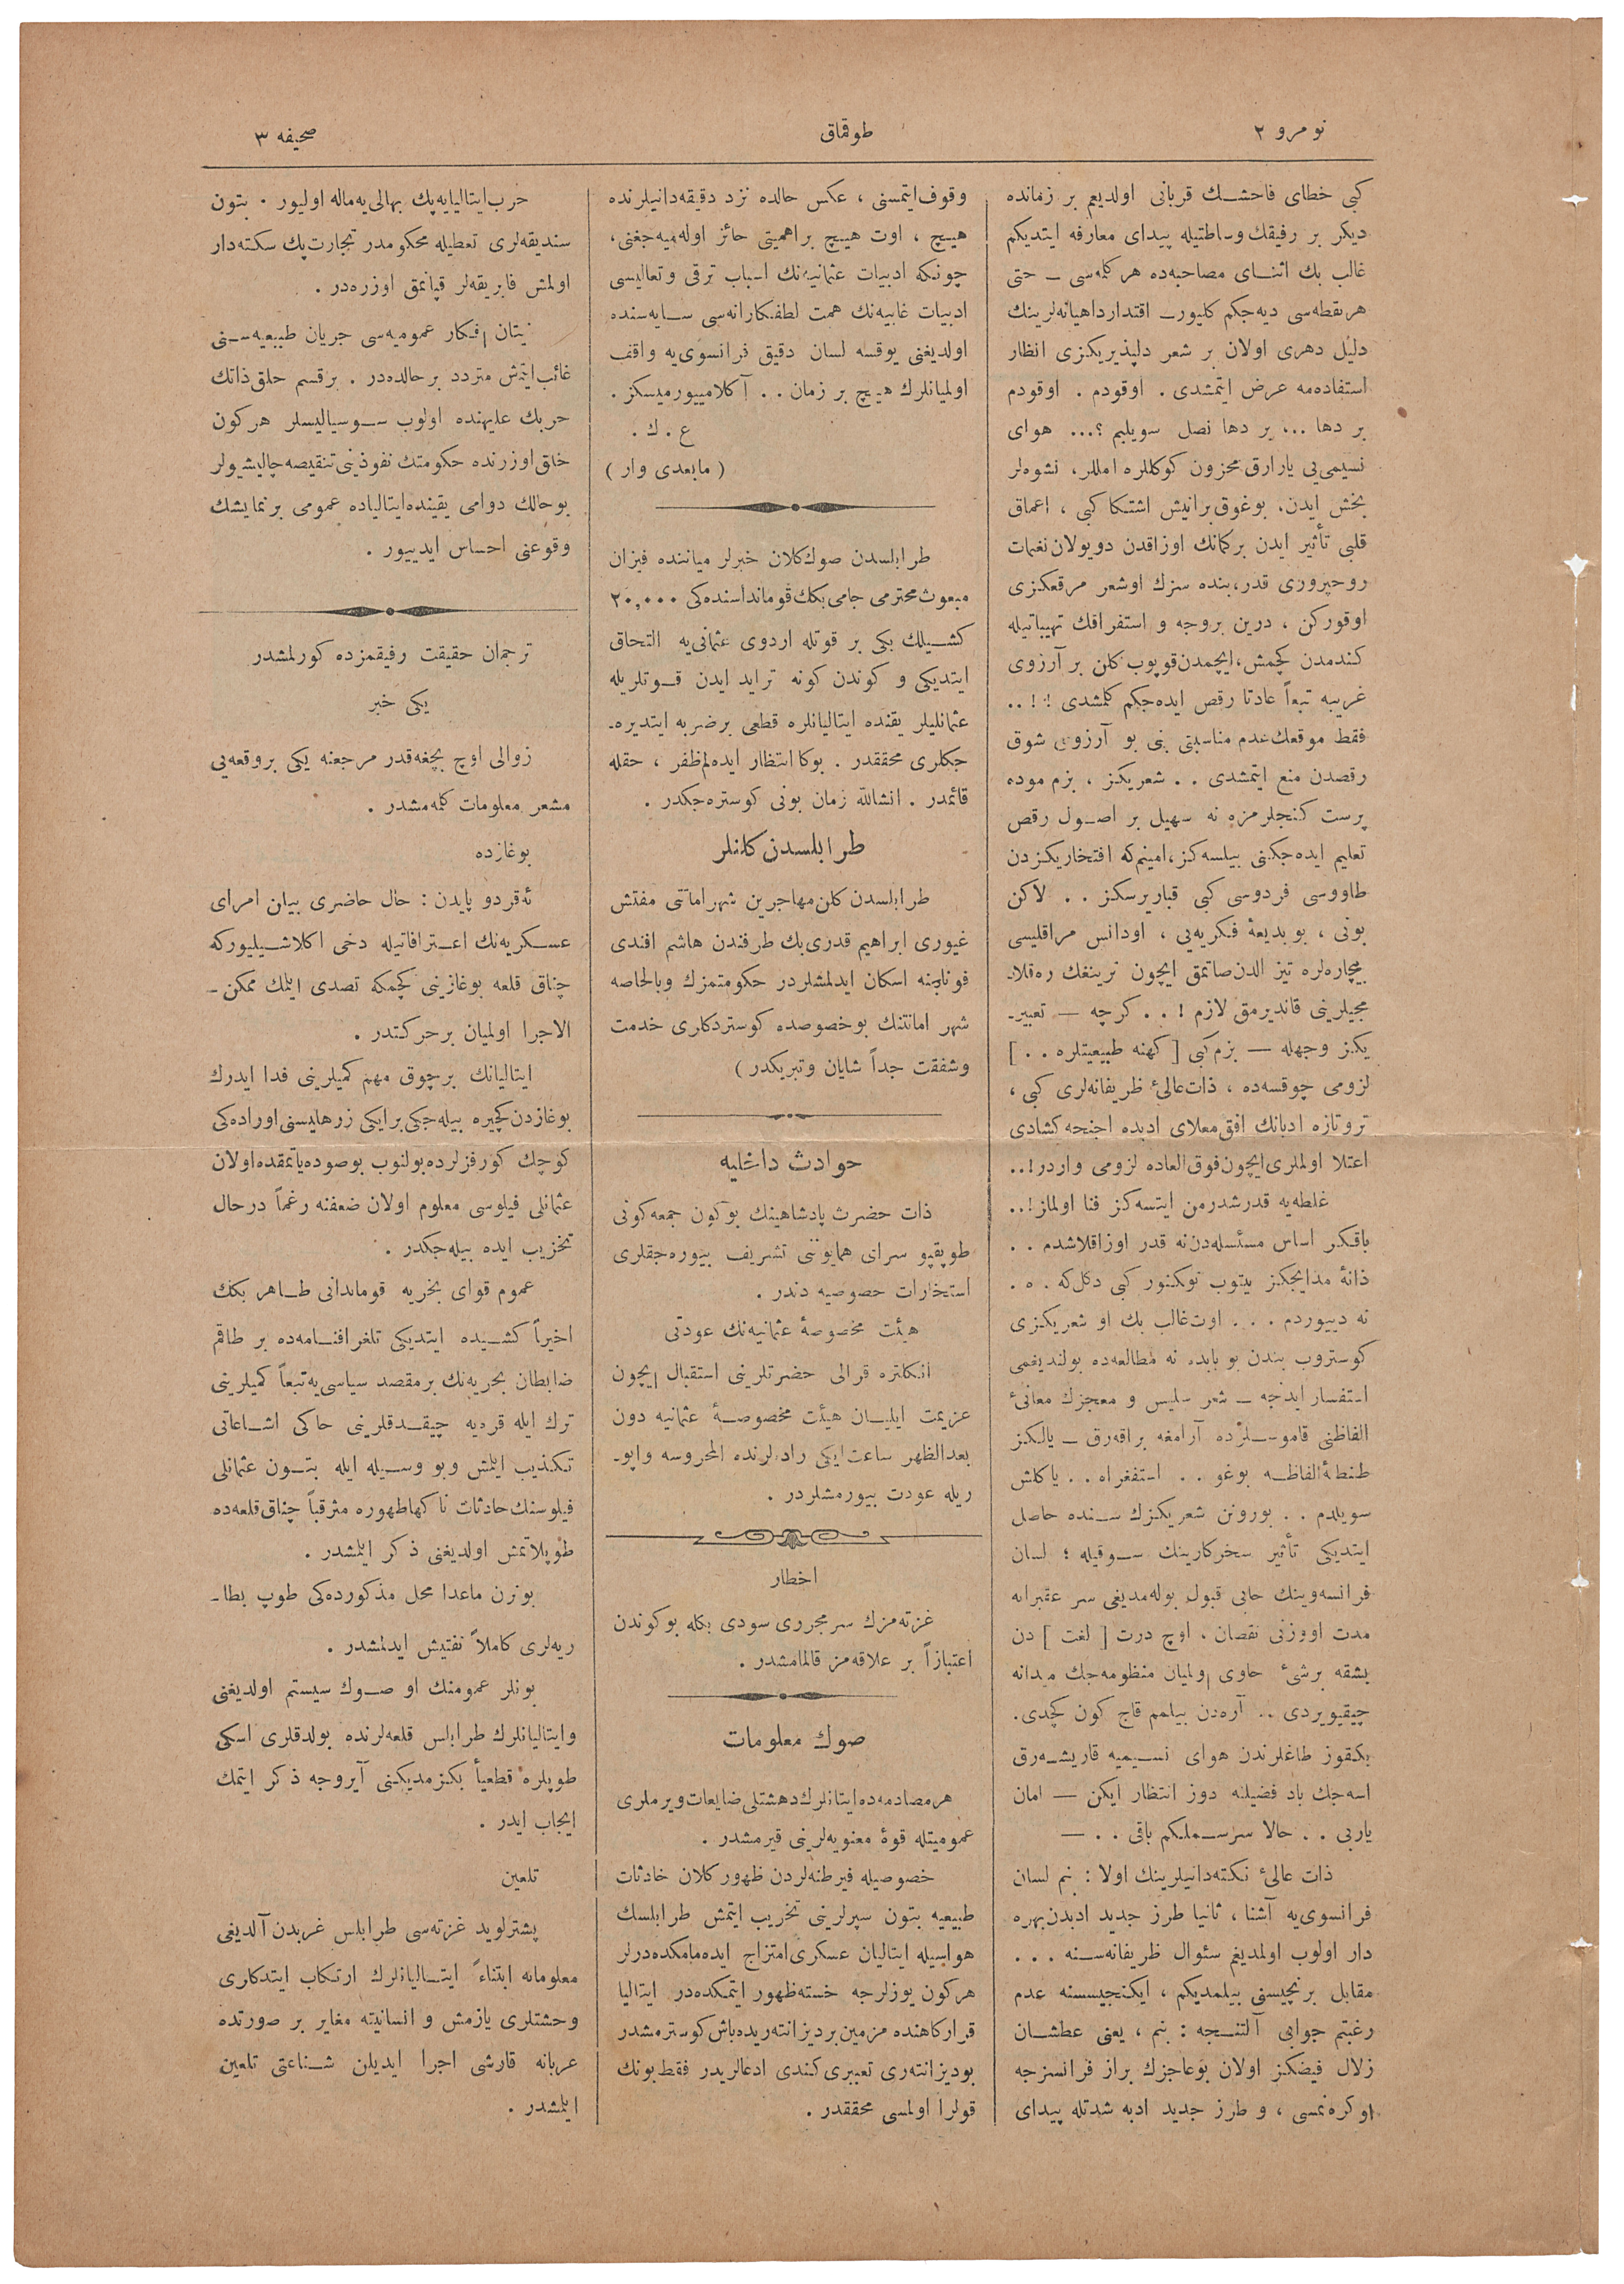 نومرو ٢
طوقماق
صحیفه ٣
كبی خطای فاحشك قربانی اولدیغم بر زمانده
دیكر بر رفیقك وساطتیله پیدای معارفه ایتدیكم
غالب بك اثنای مصاحبه‌ده هركله‌سی ــ حتی
هرنقطه‌سی دیه‌جكم كلیور ــ اقتدار داهیانه‌لرینك
دلیل دهری اولان بر شعر دلپذیریكزی انظار
استفاده‌مه عرض ایتمشدی . اوقودم . اوقودم
بر دها ... بر دها نصل سویلیم ؟... هوای
نسیمی‌یی یارارق محزون كوكللره امللر، نشوه‌لر
بخش ایدن، بوغوق برانیش اشتكا كبی ، اعماق
قلبی تأثیر ایدن بركمانك اوزاقدن دویولان نغمات
روحپروری قدر، بنده سزك اوشعر مرقعكزی
اوقوركن ، درین بروجه و استغراقك تهییجاتیله
كندمدن كچمش، ایچمدن قوپوب كلن بر آرزوی
غریبه تبعاً عادتا رقص ایده‌جكم كلمشدی ! ! ..
فقط موقعك عدم مناسبتی بنی بو آرزوی شوق
رقصدن منع ایتمشدی . . شعریكز ، بزم موده
پرست كنجلرمزه نه سهیل بر اصول رقص
تعلیم ایده‌جكنی بیلسه‌كز، امینم‌كه افتخاریكزدن
طاووسی فردوسی كبی قباریرسكز . . لاكن
بونی ، بو بدیعهٔ فكریه‌یی ، اودانس مراقلیسی
بیچاره‌لره تیز الدن صاتمق ایچون ترینغك ره‌قلا‌ـ
مجیلرینی قاندیرمق لازم ! . . كرچه — تعبیرـ
یكز وجهله — بزم كبی [ كهنه طبیعیتلره . . ]
لزومی چوقسه‌ده ، ذات عالیٔ ظریفانه‌لری كبی ،
تروتازه ادبانك افق معلای ادبده اجنحه كشادی
اعتلا اولملری ایچون فوق‌العاده لزومی واردر!..
غلطه‌یه قدرشدرمن ایتسه‌كز فنا اولماز!..
باقكر اساس مسئله‌دن نه قدر اوزاقلاشدم . .
نه دییوردم . . . اوت غالب بك او شعریكزی
كوستروب بندن بو بابده نه مطالعه‌ده بولندیغمی
استفسار ایدنجه ــ شعر سلیس و معجزك معانیٔ
الفاظنی قاموسلرده آرامغه براقه‌رق ــ یالكز
طنطنهٔ الفاظــه بوغو . . استغفراه . . یاكلش
سویلدم . . بورونن شعریكزك سنده حاصل
ایتدیكی تأثیر سحركارینك سوقیله ؛ لسان
مدت اووزنی نقصان ، اوچ درت [ لغت ] دن
بشقه برشیٔ حاوی اولمیان منظومه‌جك میدانه
چیقیویردی .. آره‌دن بیلمم قاچ كون كچدی.
یكقوز طاغلرندن هوای نسیمیه قاریشه‌رق
اسه‌جك باد فضیله دوز انتظار ایكن — امان
یاربی . . حالا سرسملكم باقی . . —
ذات عالیٔ نكته‌دانیلرینك اولا : بنم لسان
فرانسوی‌یه آشنا ، ثانیا طرز جدید ادبدن بهره
دار اولوب اولمدیغم سئوال ظریفانه‌سنه . . .
مقابل برنجیسنی بیلمدیكم ، ایكنجیسنه عدم
رغبتم جوابی آلنجه : بنم ، یعنی عطشان
زلال فیضكز اولان بوعاجزك براز فرانسزجه
اوكره‌نمسی ، و طرز جدید ادبه شدتله پیدای
وقوف ایتمسنی ، عكس حالده نزد دقیقه‌دانیلرنده
هیچ ، اوت هیچ براهمیتی حائز اوله‌میه‌جغنی،
چونكه ادبیات عثمانیه‌نك اسباب ترقی وتعالیسی
ادبیات غابیه‌نك همت لطفكارانه‌سی سایه‌سنده
اولدیغنی یوقسه لسان دقیق فرانسوی‌یه واقف
اولمیانلرك هیچ بر زمان . . آكلامییورمیسكز .
ع . ك .
( مابعدی وار )
طرابلسدن صوك كلان خبرلر میاننده فیزان
مبعوث محترمی جامی بكك قومانداسنده‌كی ٢٠,٠٠٠
كشیلك یكی بر قوتله اردوی عثمانی‌یه التحاق
ایتدیكی و كوندن كونه تزاید ایدن قوتلریله
عثمانلیلر یقنده ایتالیانلره قطعی برضربه ایتدیره‌ـ
جكلری محققدر . بوكا انتظار ایده‌لم ظفر ، حقله
قائمدر . انشاالله زمان بونی كوستره‌جكدر .
طرابلسدن كلنلر
طرابلسدن كلن مهاجرین شهرامانتی مفتش
غیوری ابراهیم قدری بك طرفندن هاشم افندی
قوناغنه اسكان ایدلمشلردر حكومتمزك وبالخاصه
شهر امانتنك بوخصوصده كوستردكاری خدمت
وشفقت جداً شایان وتبریكدر )
حوادث داخلیه
ذات حضرت پادشاهینك بوكون جمعه كونی
طوپقپو سرای همایوننی تشریف بیوره‌جقلری
استخبارات خصوصیه دندر .
هیئت مخصوصهٔ عثمانیه‌نك عودتی
انكلتره قرالی حضرتلرینی استقبال ایچون
عزیمت ایلیان هیئت مخصوصهٔ عثمانیه دون
بعدالظهر ساعت ایكی راده‌لرنده المحروسه واپو‌ـ
ریله عودت بیورمشلردر .
اخطار
غزته‌مزك سرمحرری سودی بكله بوكوندن
اعتباراً بر علاقه‌مز قالمامشدر .
صوك معلومات
هرمصادمه‌ده ایتانلرك دهشتلی ضایعات ویرملری
عمومیتله قوهٔ معنویه‌لرینی قیرمشدر .
خصوصیله فیرطنه‌لردن ظهور كلان حادثات
طبیعیه بتون سپرلرینی تخریب ایتمش طرابلسك
هواسیله ایتالیان عسكری امتزاج ایده‌مامكده‌درلر
هركون یوزلرجه خسته ظهور ایتمكده‌در ایتالیا
قراركاهنده مزمین بردیزانته‌ریده‌باش كوسترمشدر
بودیزانته‌ری تعبیری كندی ادعالریدر فقط بونك
قولرا اولمسی محققدر .
حرب ایتالیایه پك بهالی‌یه ماله اولیور . بتون
سندیقه‌لری تعطیله محكومدر تجارت پك سكته‌دار
اولمش فابریقه‌لر قپانمق اوزره‌در .
افكار عمومیه‌سی جریان طبیعیه‌سنی
غائب ایتمش متردد برحالده‌در . برقسم خلق ذاتك
حربك علیهنده اولوب سوسیالیسلر هركون
خلق اوزرنده حكومتك نفوذینی تنقیصه چالیشیولر
بوحالك دوامی یقینده ایتالیاده عمومی برنمایشك
وقوعنی احساس ایدییور .
ترجمان حقیقت رفیقمزده كورلمشدر
یكی خبر
زوالی اوچ بچغه‌قدر مرجعنه یكی بروقعه‌یی
مشعر معلومات كلمه‌مشدر .
بوغازده
ئه‌قردو پایدن : حال حاضری بیان امرای
عسكریه‌نك اعترافاتیله دخی اكلاشیلیوركه
چناق قلعه بوغازینی كچمكه تصدی ایلمك ممكن‌ـ
الاجرا اولمیان برحركتدر .
ایتالیانك برچوق مهم كمیلرینی فدا ایدرك
بوغازدن كچیره بیله‌جكی برایكی زرهلیسنی اوراده‌كی
كوچك كورفزلرده بولنوب بوصوده‌یاتمقده اولان
عثمانلی فیلوسی معلوم اولان ضعفنه رغماً درحال
تخریب ایده بیله‌جكدر .
عموم قوای بحریه قوماندانی طاهر بكك
اخیراً كشیده ایتدیكی تلغرافنامه‌ده بر طاقم
ضابطان بحریه‌نك برمقصد سیاسی‌یه تبعاً كمیلرینی
ترك ایله قره‌یه چیقدقلرینی حاكی اشاعاتی
تكذیب ایلمش وبو وسیله ایله بتون عثمانلی
فیلوسنك حادثات ناكهاظهوره مترقباً چناق قلعه‌ده
طوپلانمش اولدیغنی ذكر ایلمشدر .
بوندن ماعدا محل مذكورده‌كی طوپ بطا‌ـ
ریه‌لری كاملاً تفتیش ایدلمشدر .
بونلر عمومنك او صوك سیستم اولدیغنی
وایتالیانلرك طرابلس قلعه‌لرنده بولدقلری اسكی
طوپلره قطعیاً بكزمدیكنی آیروجه ذكر ایتمك
ایجاب ایدر .
تلعین
پشترلوید غزته‌سی طرابلس غربدن آلدیغی
معلوماته ابتناءً ایتالیانلرك ارتكاب ایتدكاری
وحشتلری یازمش و انسانیته مغایر بر صورتده
عربانه قارشی اجرا ایدیلن شناعتی تلعین
ایلمشدر .